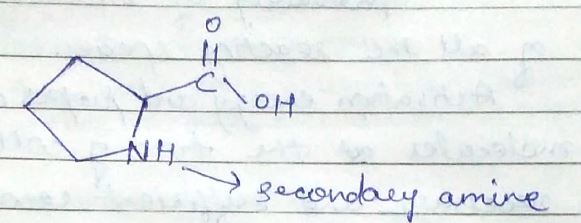 O
C
OH
NH
secondary amine